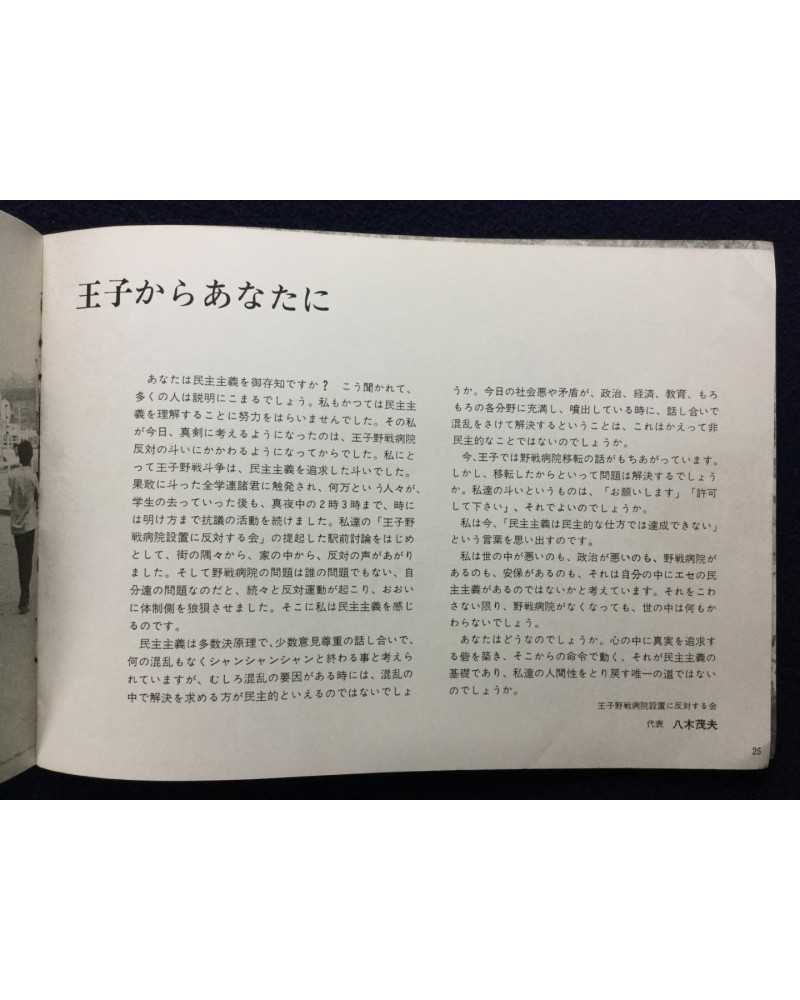 王子からあなたに
あなたは民主主義を御存知ですか？　こう聞かれて、
多くの人は説明にこまるでしょう。私もかつては民主主
義を理解することに努力をはらいませんでした。その私
が今日、真剣に考えるようになったのは、王子野戦病院
反対の斗いにかかわるようになってからでした。私にと
って王子野戦斗争は、民主主義を追求した斗いでした。
果敢に斗った全学連諸君に触発され、何万という人々が、
学生の去っていった後も、真夜中の２時３時まで、時に
は明け方まで抗議の活動を続けました。私達の「王子野
戦病院設置に反対する会」の提起した駅前討論をはじめ
として、街の隅々から、家の中から、反対の声があがり
ました。そして野戦病院の問題は誰の問題でもない、自
分達の問題なのだと、続々と反対運動が起こり、おおい
に体制側を狼狽させました。そこに私は民主主義を感じ
るのです。
民主主義は多数決原理で、少数意見尊重の話し合いで、
何の混乱もなくシャンシャンシャンと終わる事と考えら
れていますが、むしろ混乱の要因がある時には、混乱の
中で解決を求める方が民主的といえるのではないでしょ
うか。今日の社会悪や矛盾が、政治、経済、教育、もろ
もろの各分野に充満し、噴出している時に、話し合いで
混乱をさけて解決するということは、これはかえって非
民主的なことではないのでしょうか。
今、王子では野戦病院移転の話がもちあがっています。
しかし、移転したからといって問題は解決するでしょう
か。私達の斗いというものは、「お願いします」「許可
して下さい」、それでよいのでしょうか。
私は今、「民主主義は民主的な仕方では達成できない」
という言葉を思い出すのです。
私は世の中が悪いのも、政治が悪いのも、野戦病院が
あるのも、安保があるのも、それは自分の中にエセの民
主主義があるのではないかと考えています。それをこわ
さない限り、野戦病院がなくなっても、世の中は何もか
わらないでしょう。
あなたはどうなのでしょうか。心の中に真実を追求す
る砦を築き、そこからの命令で動く、それが民主主義の
基礎であり、私達の人間性をとり戻す唯一の道ではない
のでしょうか。
王子野戦病院設置に反対する会
代表　八木茂夫
25